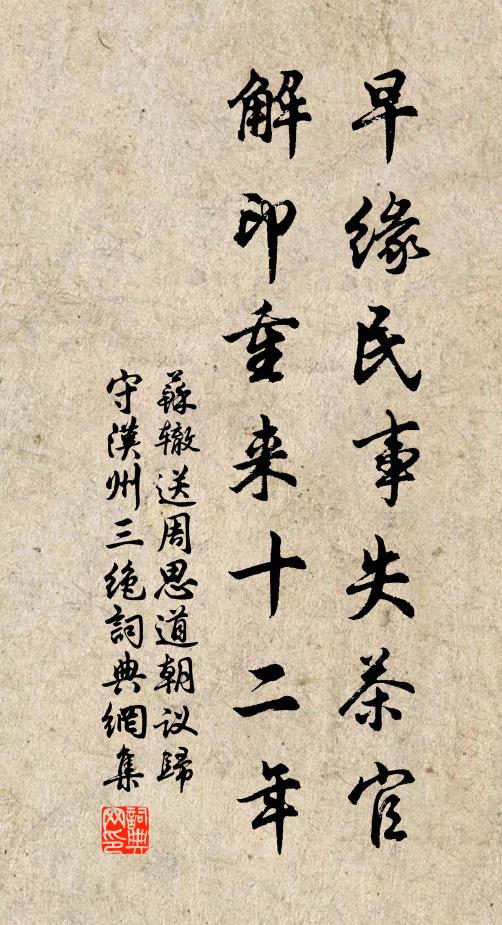 早缘民事失茶官
解印重来十二年
蘇辙送周思道朝议歸
守漢州三绝詞典網集
詞典网印